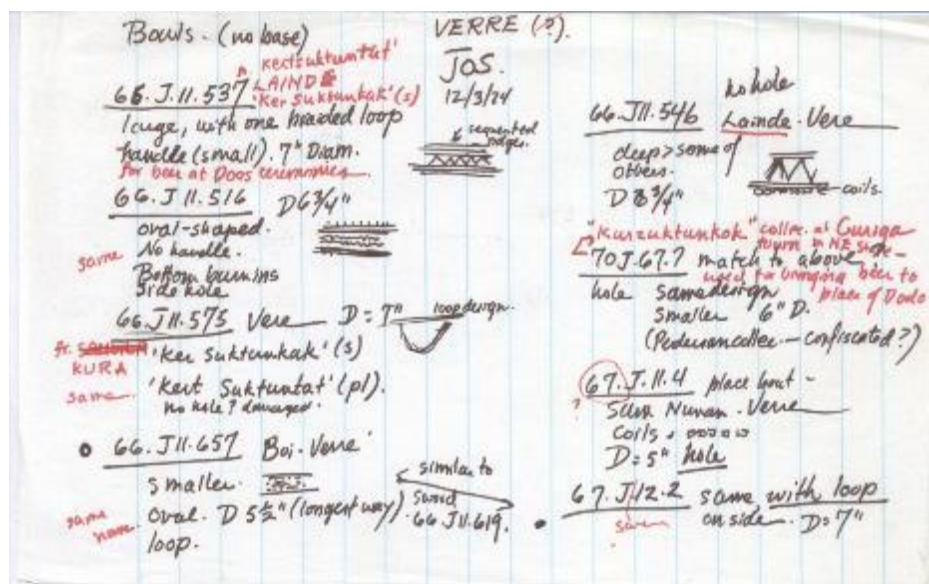 Bowls. (no base)
VERRE (?).
JOS.
12/3/74
Kertsuktuntat'
LAINDE
'Ker Suktunkak' (s)
66.J.11.537
large, with one braided loop
handle (small). 7" Diam.
for beer at Doos ceremonies.
segmented
ridges.
66.J11.516 D 6 3/4"
oval-shaped.
same No handle.
Bottom burnins
Side hole
66.J11.575 Vere D = 7" loop design.
fr.
KURA
'Ker Suktunkak' (s)
same 'Kert Suktuntat' (pl).
no hole? damaged.
66.J11.657 Boi-Verre
smaller.
same name
Oval. D 5 1/2" (longest way).
loop.
similar to
66 J11.619.
no hole
66.J11.546 Lainde. Vere
deep > some of
others.
D 8 3/4"
coils.
"Kurzuktunkok" collec. at Guriga
70J.67.7 match to above
used for bringing beer to
place of Dodo
hole same design
smaller 6" D.
(Pederson collec. — confiscated?)
67.J.11.4 place bout -
?
Nunan. Verre
Coils
D = 5" hole
67.J12.2 same with loop
on side. D = 7"